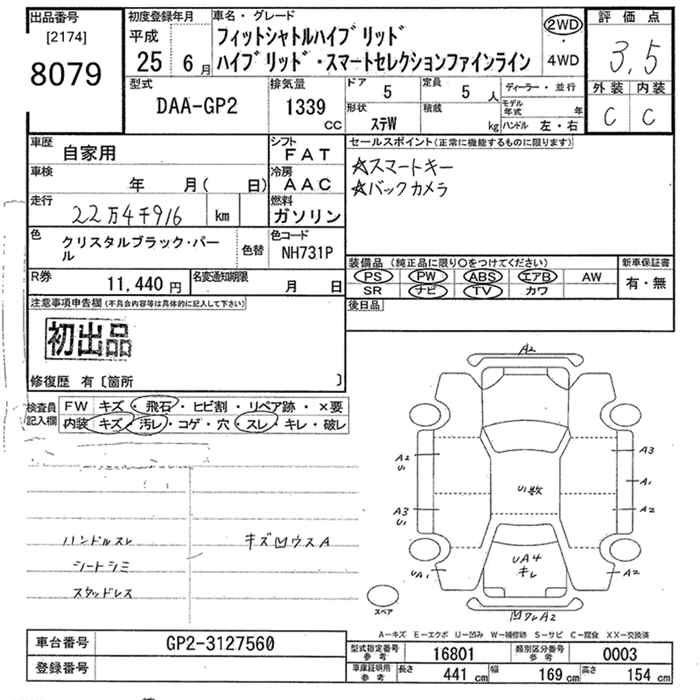 出品番号
[2174]
8079
初度登録年月
平成
25 6月
車名・グレード
フィットシャトルハイブリッド
ハイブリッド・スマートセレクションファインライン
2WD
・
4WD
評価点
3.5
外装 内装
C C
型式
DAA-GP2
排気量
1339
CC
ドア
5
定員
5 人
ディーラー・並行
形状
ステW
積載
kg
モデル
年式
年
ハンドル 左・右
車歴
自家用
シフト
FAT
車検
年 月( 日)
冷房
AAC
走行
22万4千916 km
燃料
ガソリン
色
クリスタルブラック・パー
ル
色替
色コード
NH731P
R券
11,440 円
名変通知期限
月 日
セールスポイント(正常に機能するものに限ります)
☆スマートキー
☆バックカメラ
装備品 (純正品に限り○をつけてください)
PS PW ABS エアB AW
SR ナビ TV カワ
新車保証書
有・無
後日品
注意事項申告欄(不具合内容等は具体的に記入して下さい)
初出品
修復歴 有〔箇所 〕
検査員
記入欄
FW キズ・飛石・ヒビ割・リペア跡・×要
内装 キズ・汚レ・コゲ・穴・スレ・キレ・破レ
ハンドルスレ
シートシミ
スタッドレス
キズ凹ウスA
A2
A2
U1
A3
U1
UA1
U1数
UA4
キレ
A3
A1
A2
A2
スペア
凹ワレA2
A―キズ E―エクボ U―凹み W―補修跡 S―サビ C―腐食 XX―交換済
車台番号
GP2-3127560
登録番号
型式指定番号
参考
16801
類別区分番号
参考
0003
車庫証明用
参考
長さ
441 cm
幅
169 cm
高さ
154 cm